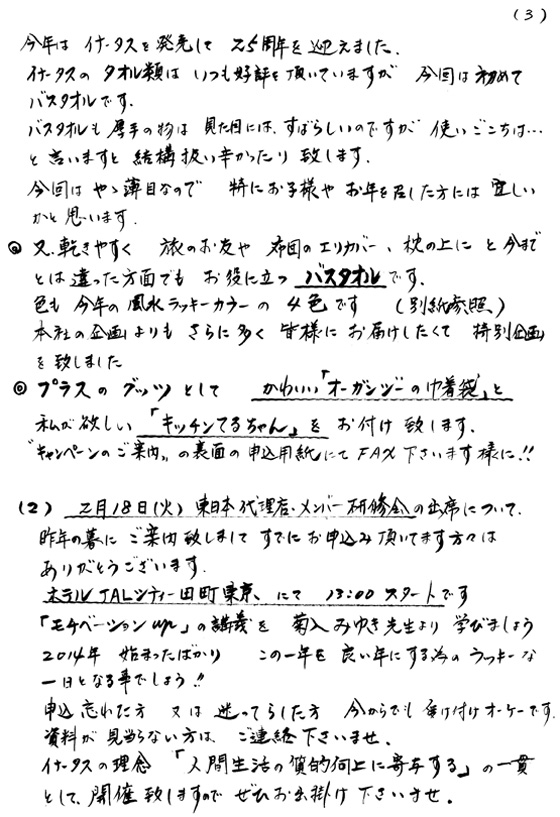 (3)
今年は イオータスを発売して 25周年を迎えました.
イオータスの タオル類は いつも好評を頂いていますが 今回は初めて
バスタオルです.
バスタオルも厚手の物は 見た目には、すばらしいのですが 使いごこちは…
と言いますと 結構扱い辛かったり致します.
今回はやゝ薄目なので 特にお子様や お年を召した方には宜しい
かと思います.
◎ 又、乾きやすく 旅のお友や 布団のエリカバー、枕の上に と今まで
とは違った方面でも お役に立つ バスタオル です.
色も 今年の風水ラッキーカラーの 4色です (別紙参照)
本社の企画よりも さらに多く 皆様に お届けしたくて 特別企画
を致しました
◎ プラスの グッツとして かわいい「オーガンジーの巾着袋」と
私が欲しい「キッチンてるちゃん」を お付け致します.
"キャンペーンのご案内"の裏面の申込用紙にて FAX下さいます様に!!
(2) 2月18日(火) 東日本代理店・メンバー研修会の出席について.
昨年の暮に ご案内致しまして すでにお申込み頂いてます方々は
ありがとうございます.
ホテルJALシティー田町東京、にて 13:00 スタートです
「モチベーションup」の講義を 菊入みゆき先生より 学びましょう
2014年 始まったばかり この一年を良い年にする為の ラッキーな
一日となる事でしょう!!
申込忘れた方 又は 迷ってらした方 今からでも受け付けオーケーです.
資料が見当らない方は、ご連絡下さいませ.
イオータスの理念 「人間生活の質的向上に寄与する」の一貫
として、開催致しますので ぜひお出掛け下さいませ.